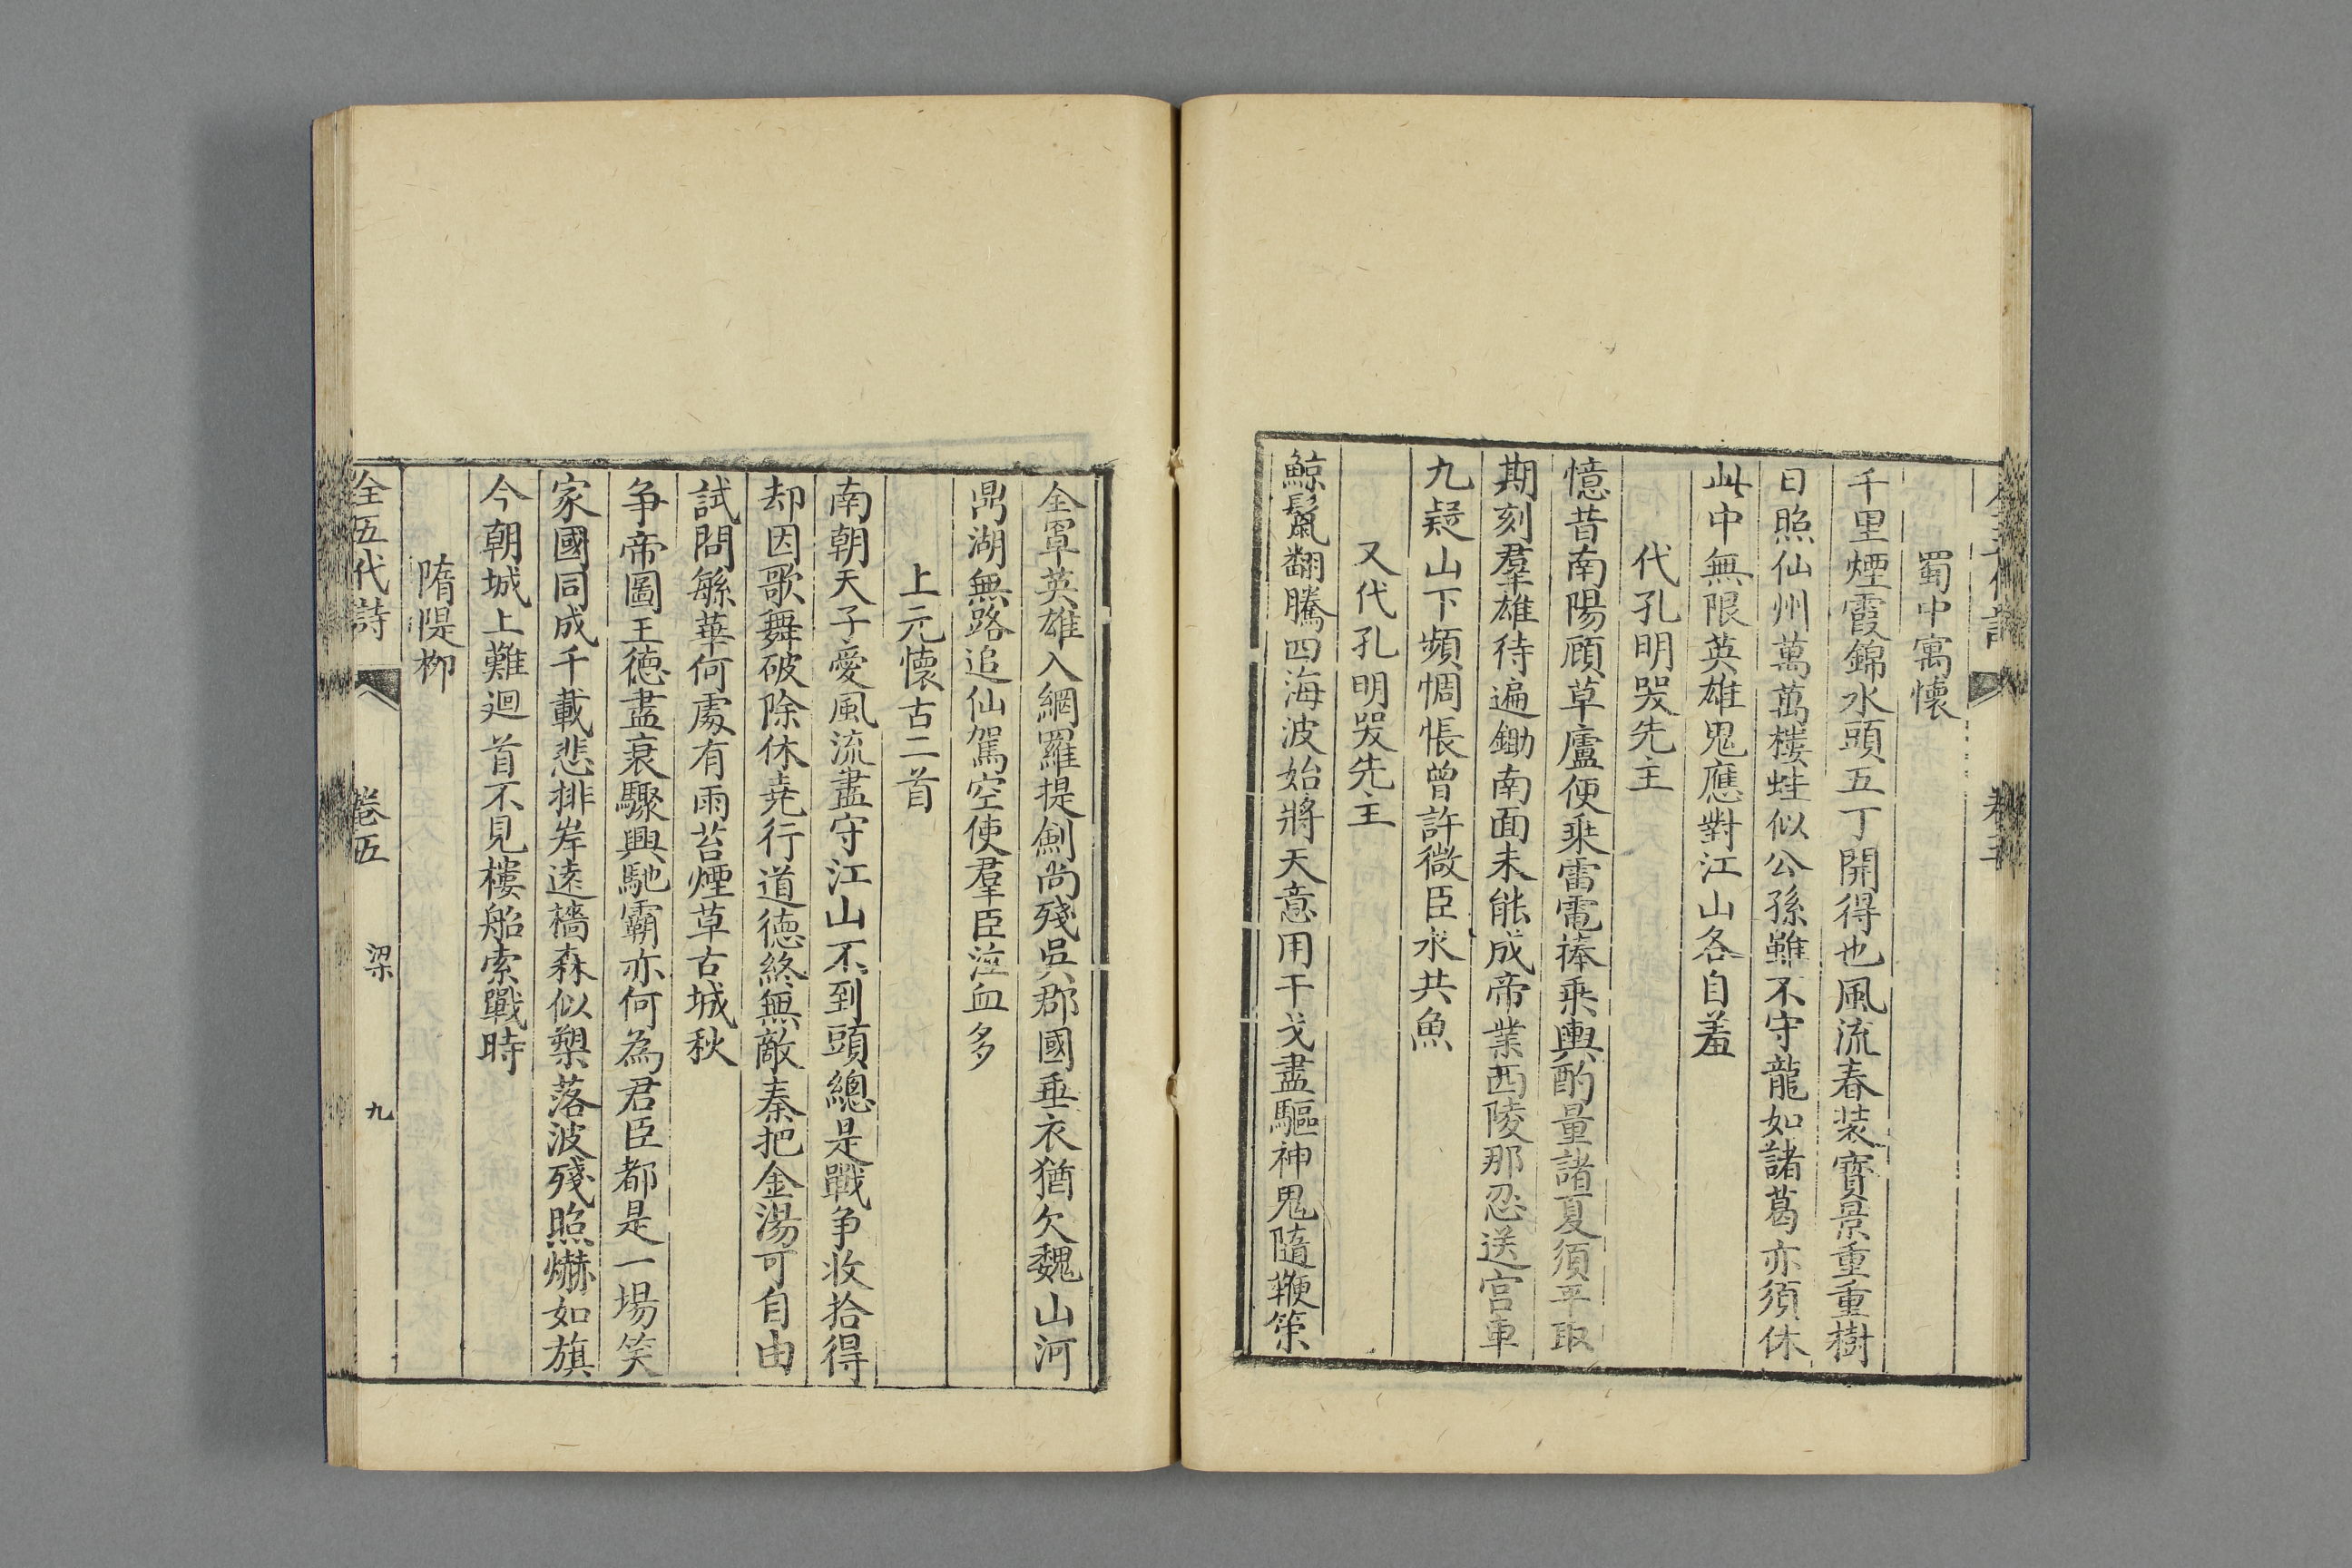 蜀中寓懷
千里煙霞錦水頭五丁開得也風流春装寳景重重樹
日照仙州萬萬樓蛙似公孫雖不守龍如諸葛亦須休
此中無限英雄鬼應對江山各自羞
代孔明哭先主
憶昔南陽顧草廬便乗雷電捧乗輿酌量諸夏須平取
期刻羣雄待遍鋤南面未能成帝業西陵那忍送宫車
九疑山下頻惆悵曾許微臣水共魚
又代孔明哭先主
鯨鬣翻騰四海波始將天意用干戈盡驅神鬼隨鞭策
全罩英雄入網羅提劍尚殘吳郡國垂衣猶欠魏山河
鼎湖無路追仙駕空使羣臣泣血多
上元懷古二首
南朝天子愛風流盡守江山不到頭總是戰争收拾得
却因歌舞破除休堯行道德終無敵秦把金湯可自由
試問緐華何處有雨苔煙草古城秋
争帝圖王德盡衰驟興馳霸亦何為君臣都是一場笑
家國同成千載悲排岸遠檣森似槊落波殘照爀如旗
今朝城上難迴首不見樓船索戰時
隋隄栁
全五代詩 卷五 梁 九